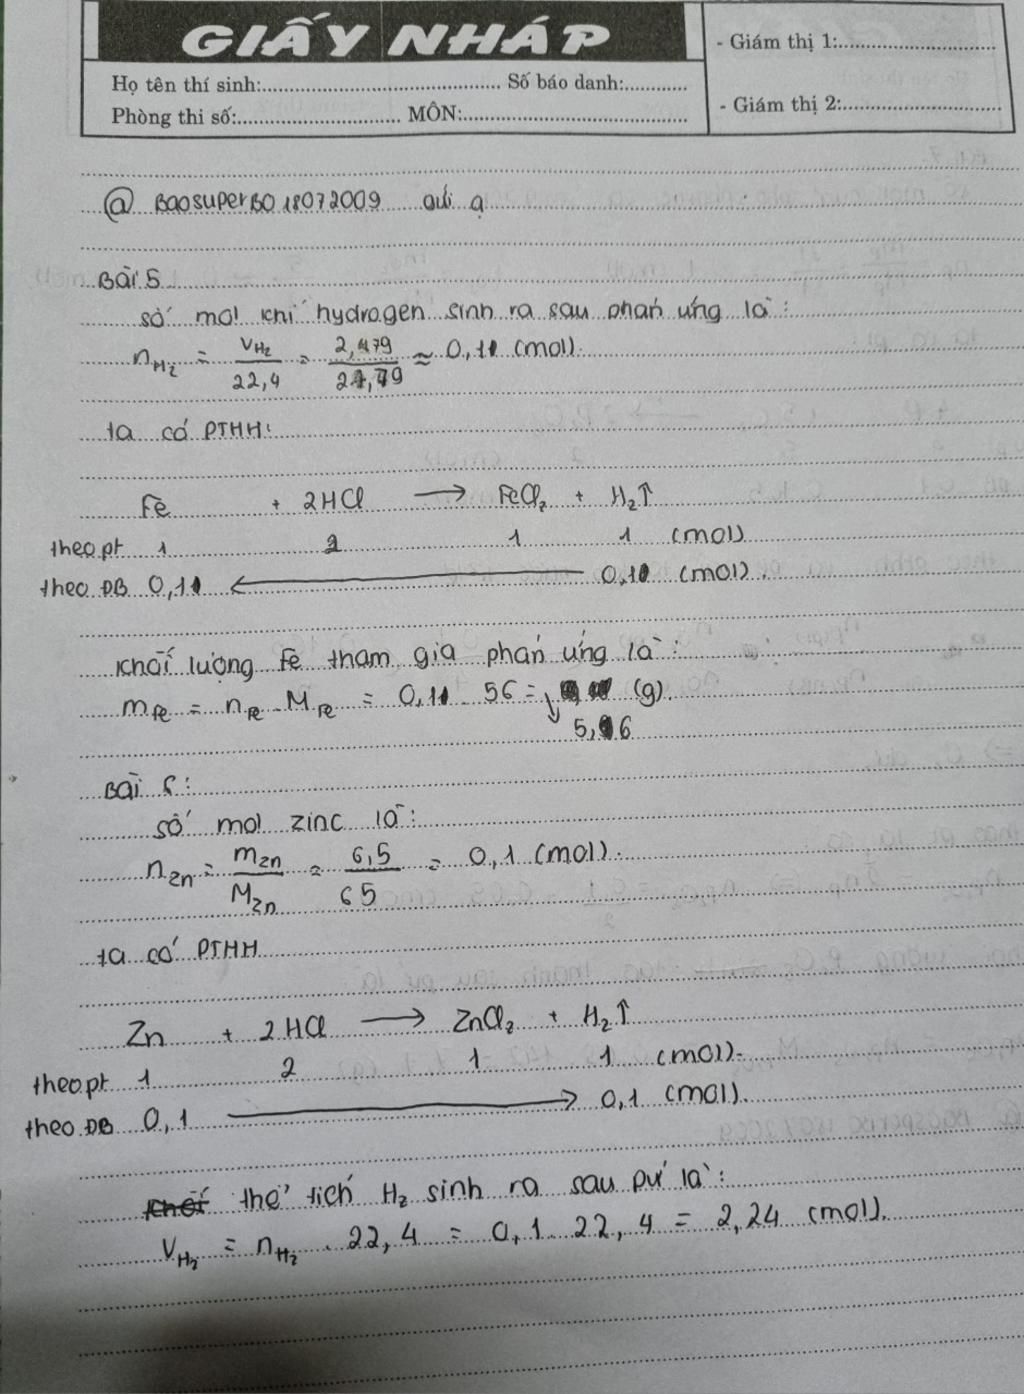 GIẤY NHÁP
- Giám thị 1:
Họ tên thí sinh: Số báo danh:
Phòng thi số: MÔN:
- Giám thị 2:
@ BAOSUPERBO18072009 gửi ạ
Bài 5
số mol khí hydrogen sinh ra sau phản ứng là:
nH₂ = VH₂/22,4 = 2,479/24,79 ≈ 0,1 (mol).
ta có PTHH:
Fe + 2HCl → FeCl₂ + H₂↑
theo pt 1 2 1 1 (mol)
theo ĐB 0,1 ← 0,1 (mol).
Khối lượng Fe tham gia phản ứng là:
mFe = nFe . MFe = 0,1 . 56 = (g).
5,6
Bài 6:
số mol zinc là:
nZn = mZn/MZn = 6,5/65 = 0,1 (mol).
ta có PTHH
Zn + 2HCl → ZnCl₂ + H₂↑
theo pt 1 2 1 1 (mol).
theo ĐB 0,1 → 0,1 (mol).
thể tích H₂ sinh ra sau pứ là:
VH₂ = nH₂ . 22,4 = 0,1 . 22,4 = 2,24 (mol).